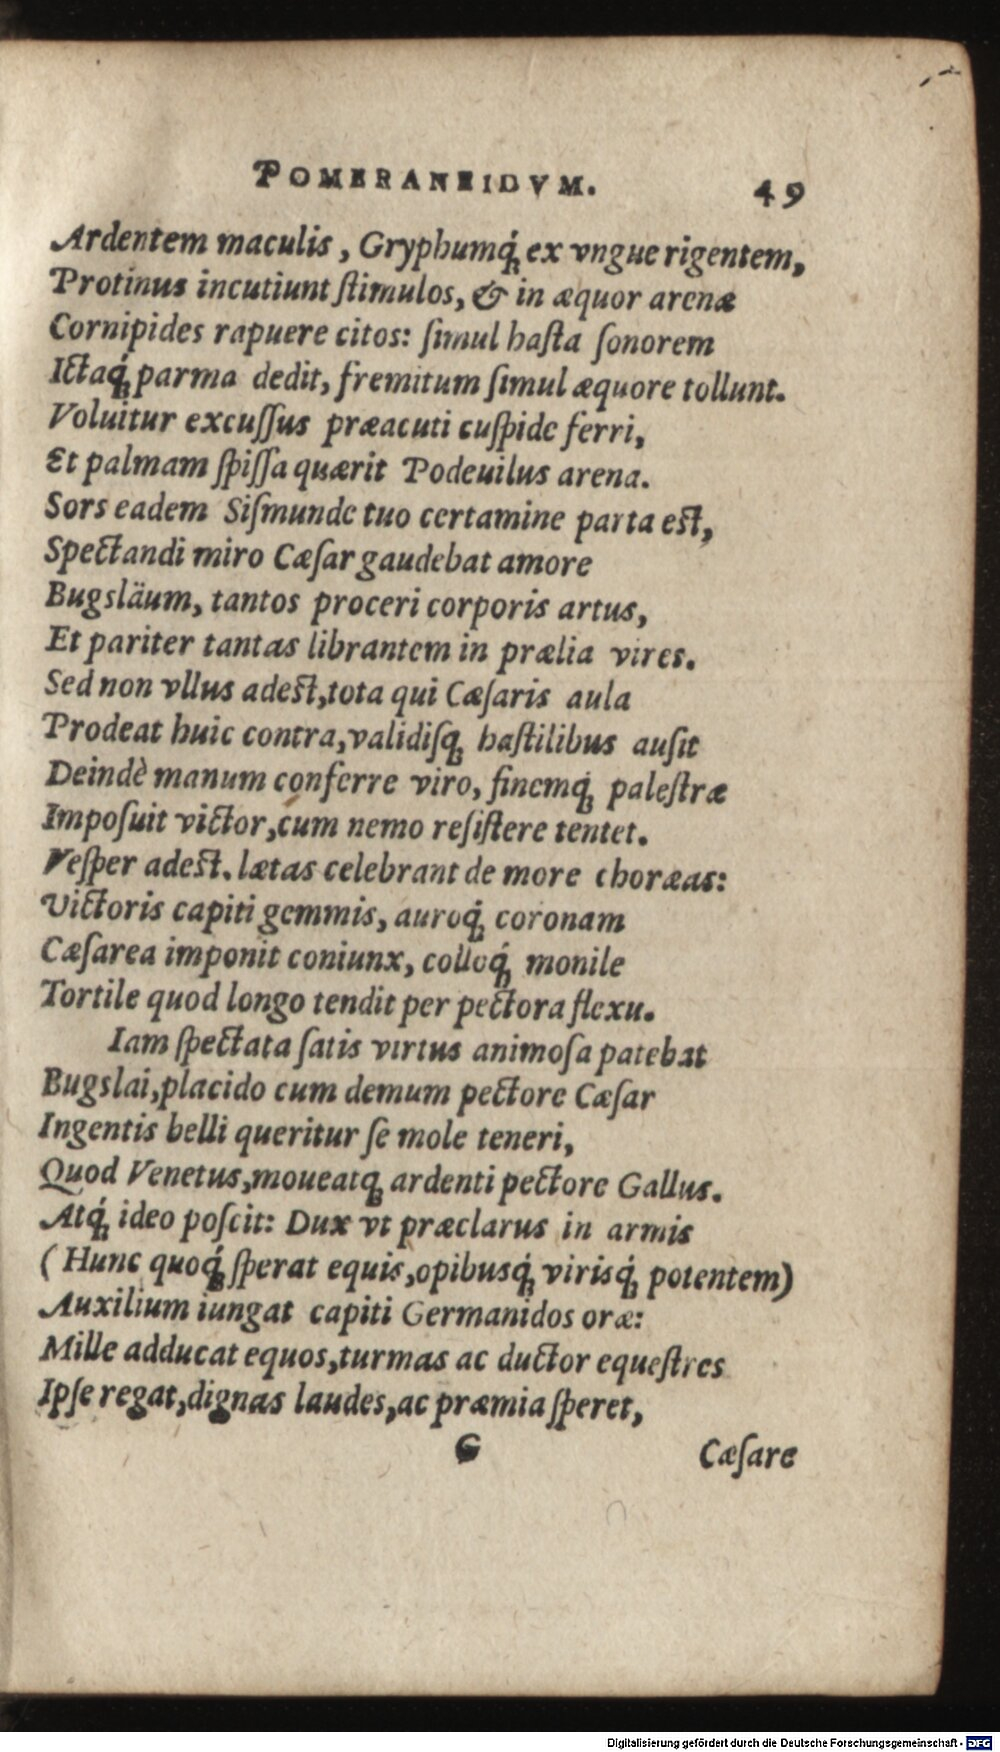 POMERANEIDVM. 49
Ardentem maculis, Gryphumq́; ex vngue rigentem,
Protinus incutiunt ſtimulos, & in æquor arenæ
Cornipides rapuere citos: ſimul haſta ſonorem
Ictaq́; parma dedit, fremitum ſimul æquore tollunt.
Voluitur excuſſus præacuti cuſpide ferri,
Et palmam ſpiſſa quærit Podeuilus arena.
Sors eadem Siſmunde tuo certamine parta eſt,
Spectandi miro Cæſar gaudebat amore
Bugsläum, tantos proceri corporis artus,
Et pariter tantas librantem in prælia vires.
Sed non vllus adeſt, tota qui Cæſaris aula
Prodeat huic contra, validiſq; haſtilibus auſit
Deindè manum conferre viro, finemq́; paleſtræ
Impoſuit victor, cum nemo reſiſtere tentet.
Veſper adeſt. lætas celebrant de more choræas:
Victoris capiti gemmis, auroq́; coronam
Cæſarea imponit coniunx, colloq́; monile
Tortile quod longo tendit per pectora flexu.
Iam ſpectata ſatis virtus animoſa patebat
Bugslai, placido cum demum pectore Cæſar
Ingentis belli queritur ſe mole teneri,
Quod Venetus, moueatq; ardenti pectore Gallus.
Atq́; ideo poſcit: Dux vt præclarus in armis
(Hunc quoq́; ſperat equis, opibusq́; virisq́; potentem)
Auxilium iungat capiti Germanidos oræ:
Mille adducat equos, turmas ac ductor equeſtres
Ipſe regat, dignas laudes, ac præmia ſperet,
G Cæſare
Digitalisierung gefördert durch die Deutsche Forschungsgemeinschaft - DFG